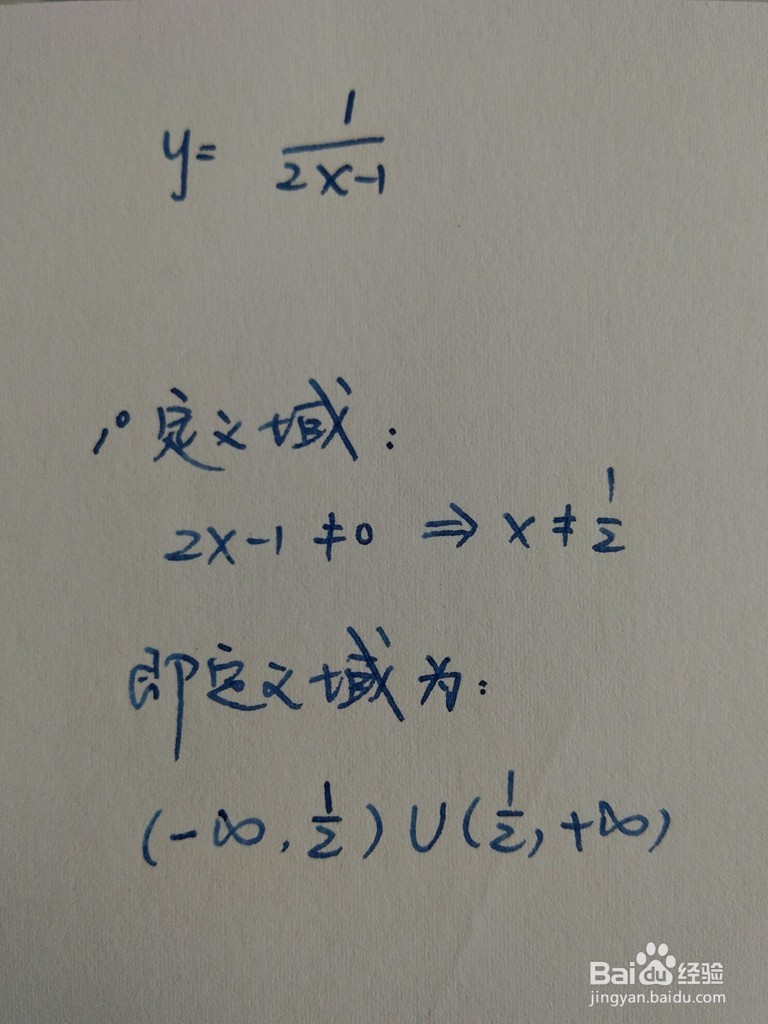 y= 1/(2x-1)
1° 定义域：
2x-1≠0 ⇒ x≠1/2
即定义域为：
(-∞, 1/2)∪(1/2, +∞)
Baidu经验
jingyan.baidu.com